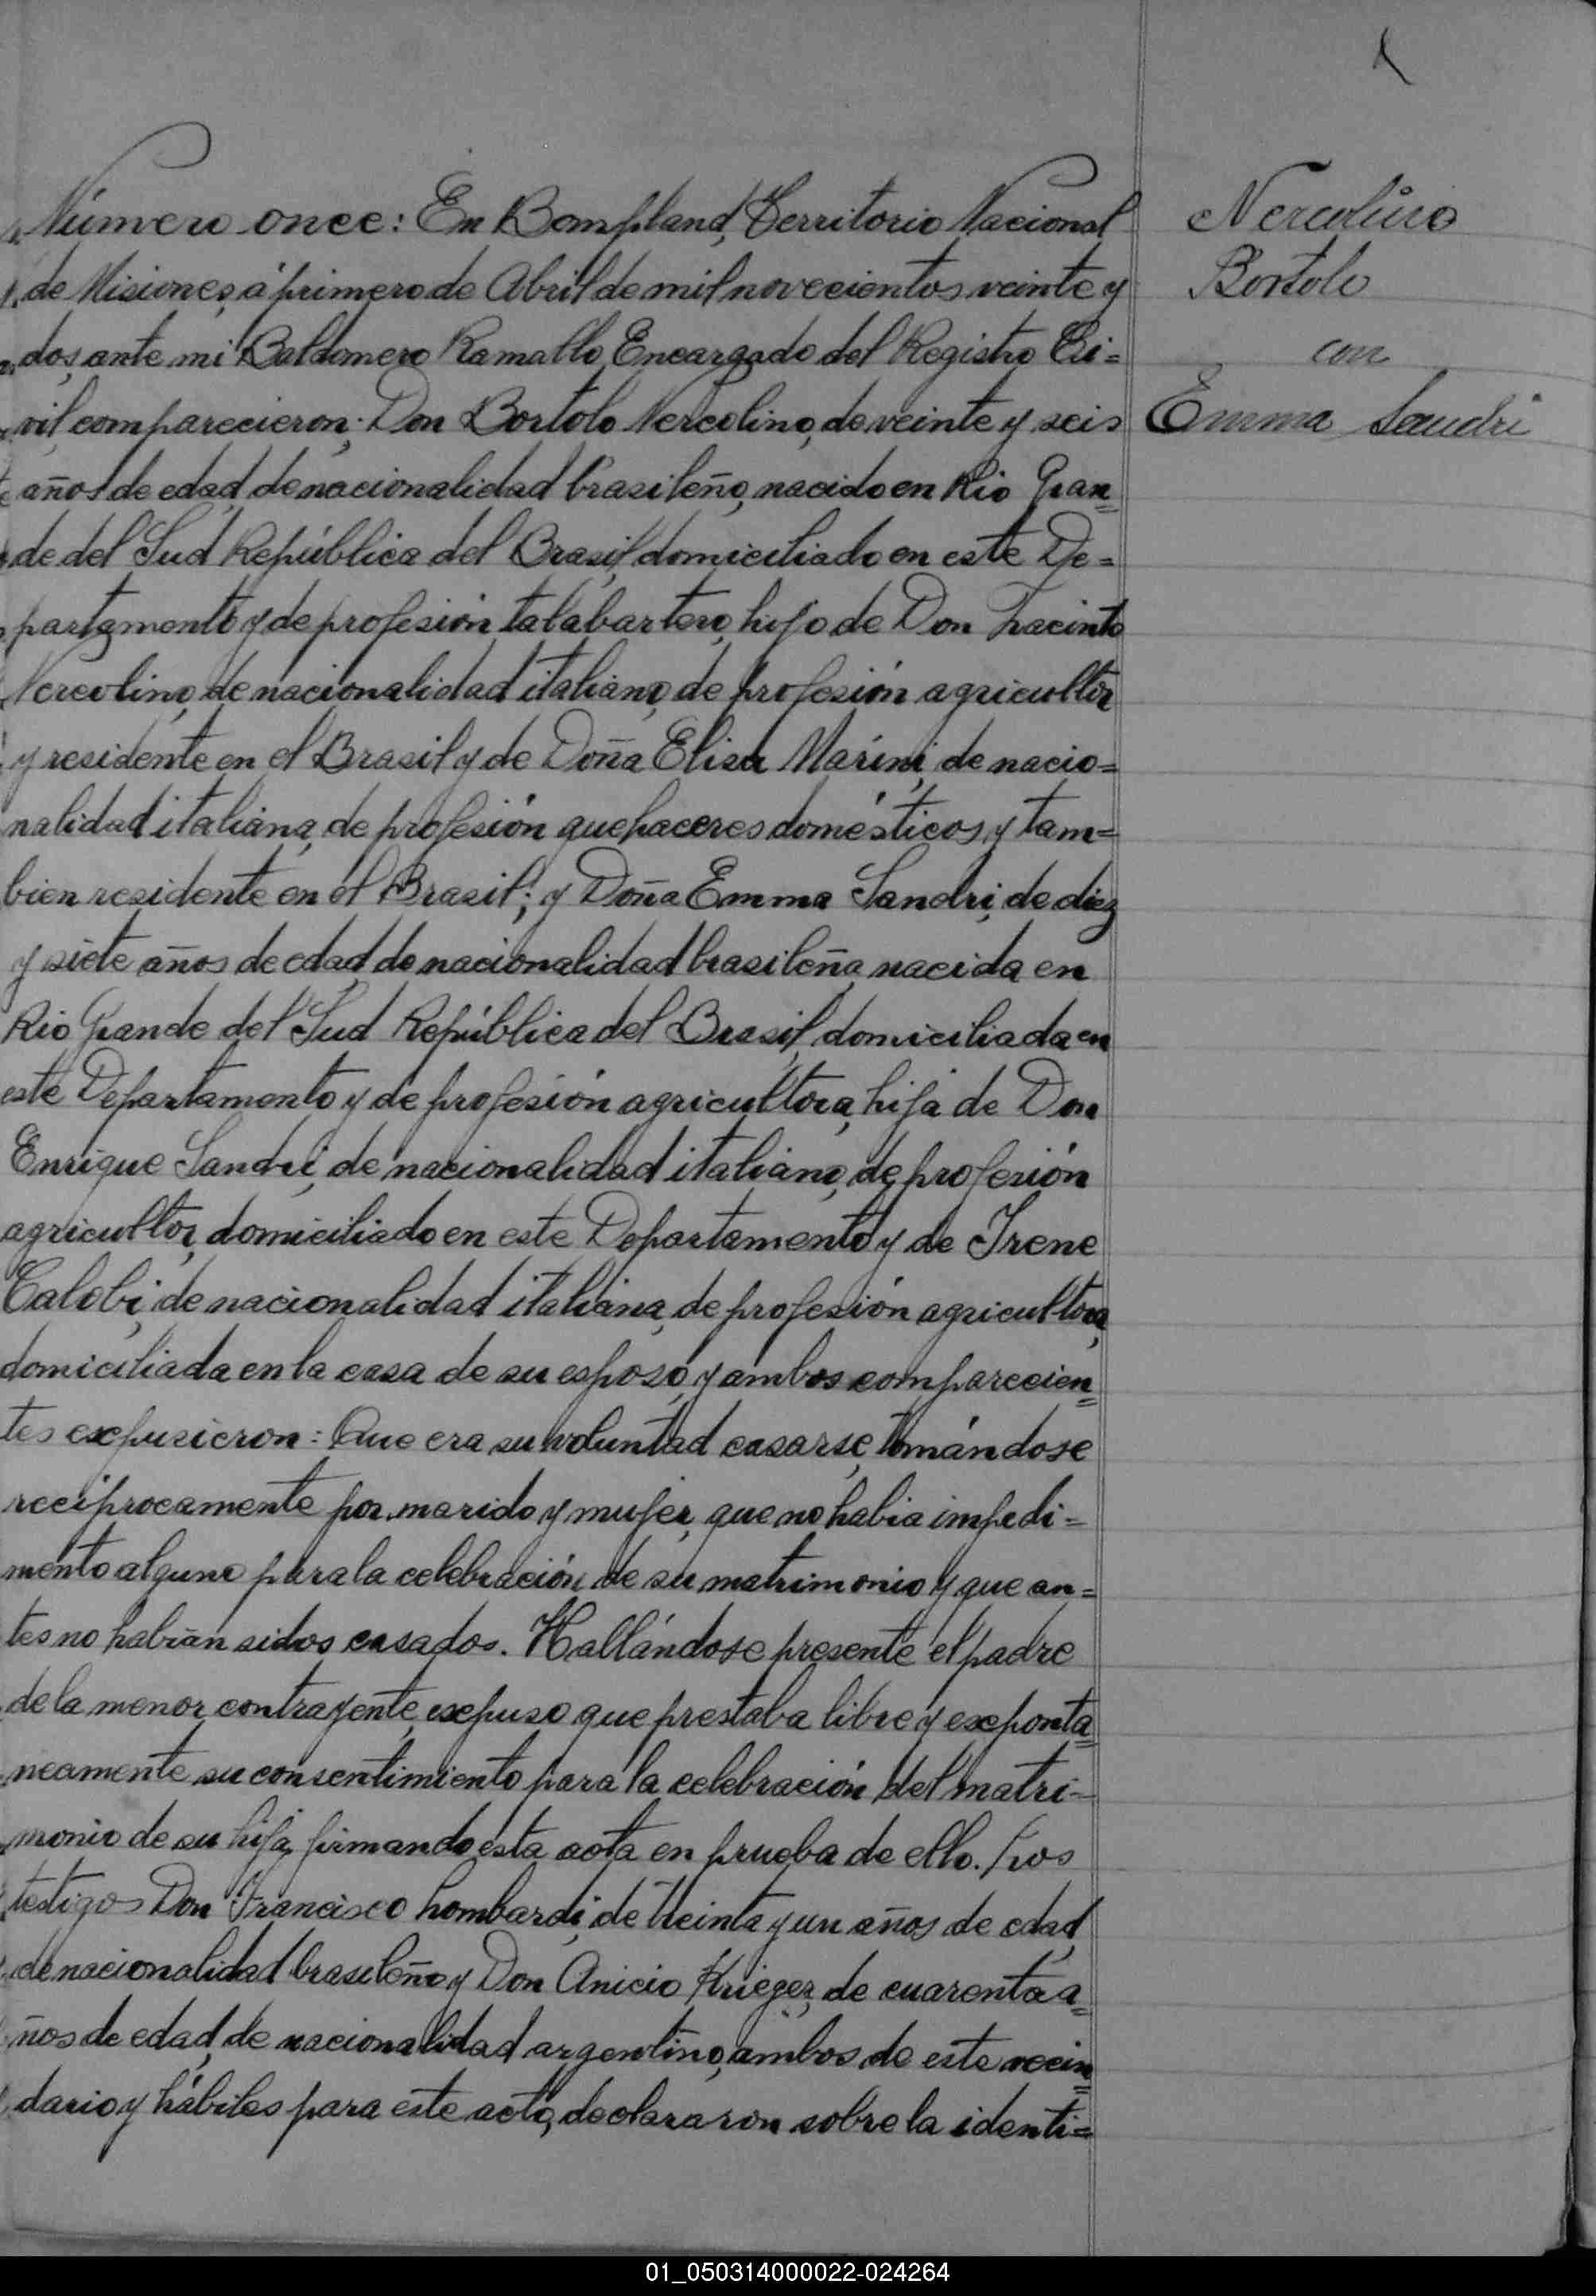 Número once: En Bompland, Territorio Nacional
de Misiones, á primero de Abril de mil novecientos veinte y
dos, ante mi Baldomero Ramallo, Encargado del Registro Ci=
vil comparecieron: Don Bortolo Nercolino, de veinte y seis
años de edad, de nacionalidad brasileño, nacido en Rio Gran=
de del Sud República del Brasil, domiciliado en este De=
partamento y de profesión talabartero, hijo de Don Jacinto
Nercolino, de nacionalidad italiano, de profesión agricultor
y residente en el Brasil y de Doña Elisa Marini, de nacio=
nalidad italiana, de profesión quehaceres domésticos y tam=
bien residente en el Brasil; y Doña Emma Sandri, de diez
y siete años de edad, de nacionalidad brasileña, nacida en
Rio Grande del Sud República del Brasil, domiciliada en
este Departamento y de profesión agricultora, hija de Don
Enrique Sandri, de nacionalidad italiano, de profesión
agricultor, domiciliado en este Departamento y de Irene
Calobi, de nacionalidad italiana, de profesión agricultora,
domiciliada en la casa de su esposo, y ambos comparecien=
tes expusieron: Que era su voluntad casarse, tomándose
reciprocamente por marido y mujer, que no habia impedi=
mento alguno para la celebración de su matrimonio y que an=
tes no habian sidos casados. Hallándose presente el padre
de la menor contrayente, expuso que prestaba libre y exponta=
neamente su consentimiento para la celebración del matri=
monio de su hija, firmando esta acta en prueba de ello. Los
testigos Don Francisco Lombardi, de treinta y un años de edad,
de nacionalidad brasileño y Don Anicio Krieger, de cuarenta a=
ños de edad, de nacionalidad argentino, ambos de este vecin=
dario y hábiles para este acto, declararon sobre la identi=
Nercolino
Bortolo
con
Emma Sandri
01_050314000022-024264